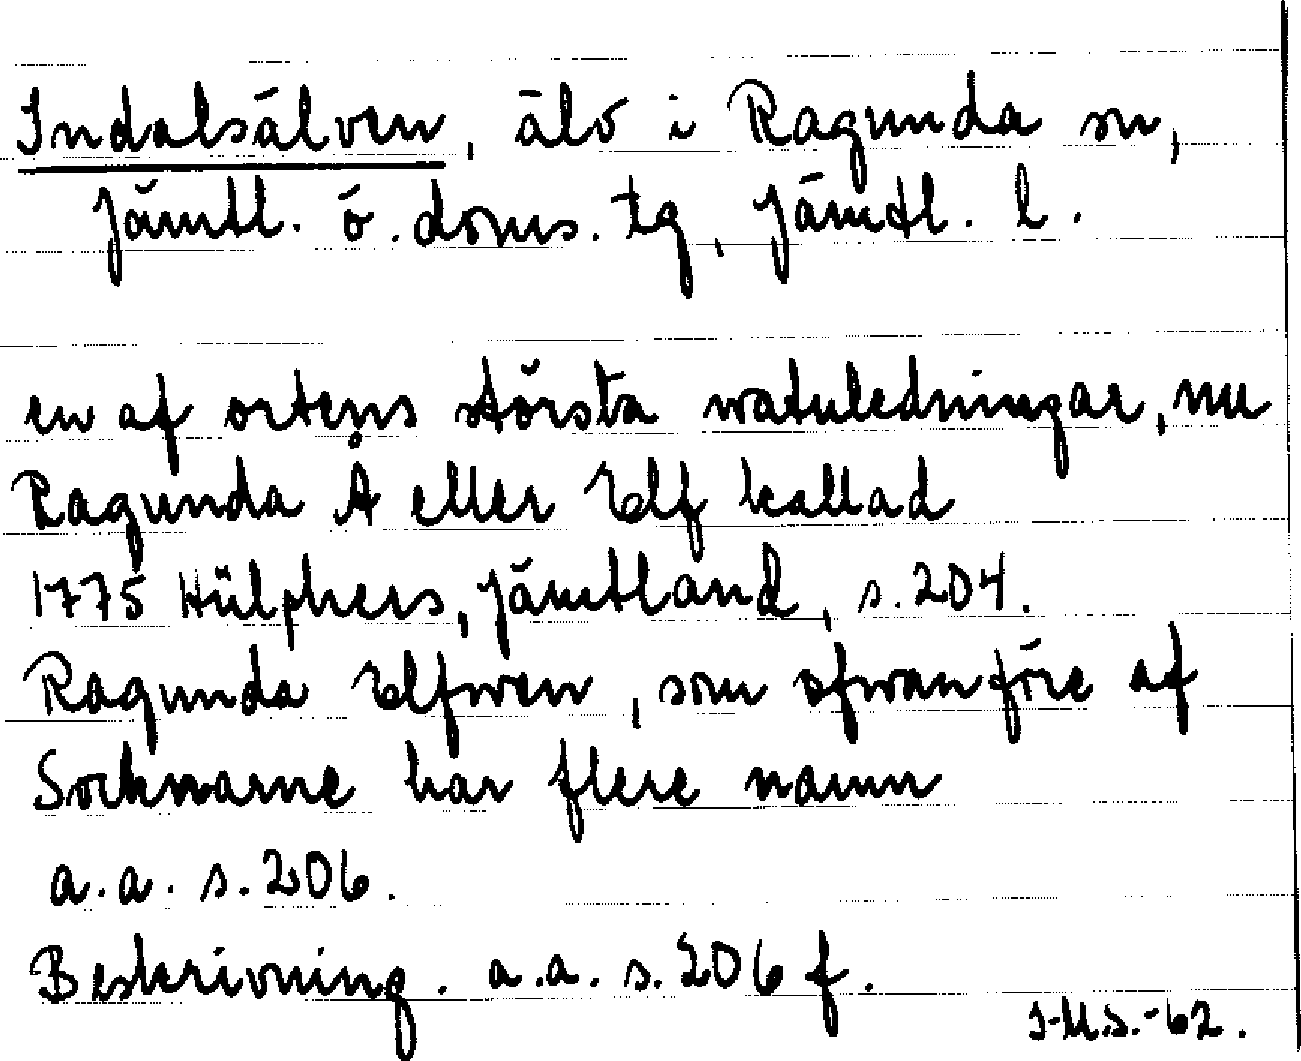 Indalsälven, älv i Ragunda sn,
Jämtl. ö. doms. tg, Jämtl. l.
en af ortens största watuledningar, nu
Ragunda Å eller Elf kallad
1775 Hülphers, Jämtland, s. 204.
Ragunda Elfwen, som ofwanföre af
Socknarne har flere namn
a.a. s. 206.
Beskrivning. a.a. s. 206 f.
I-M.S.-62.